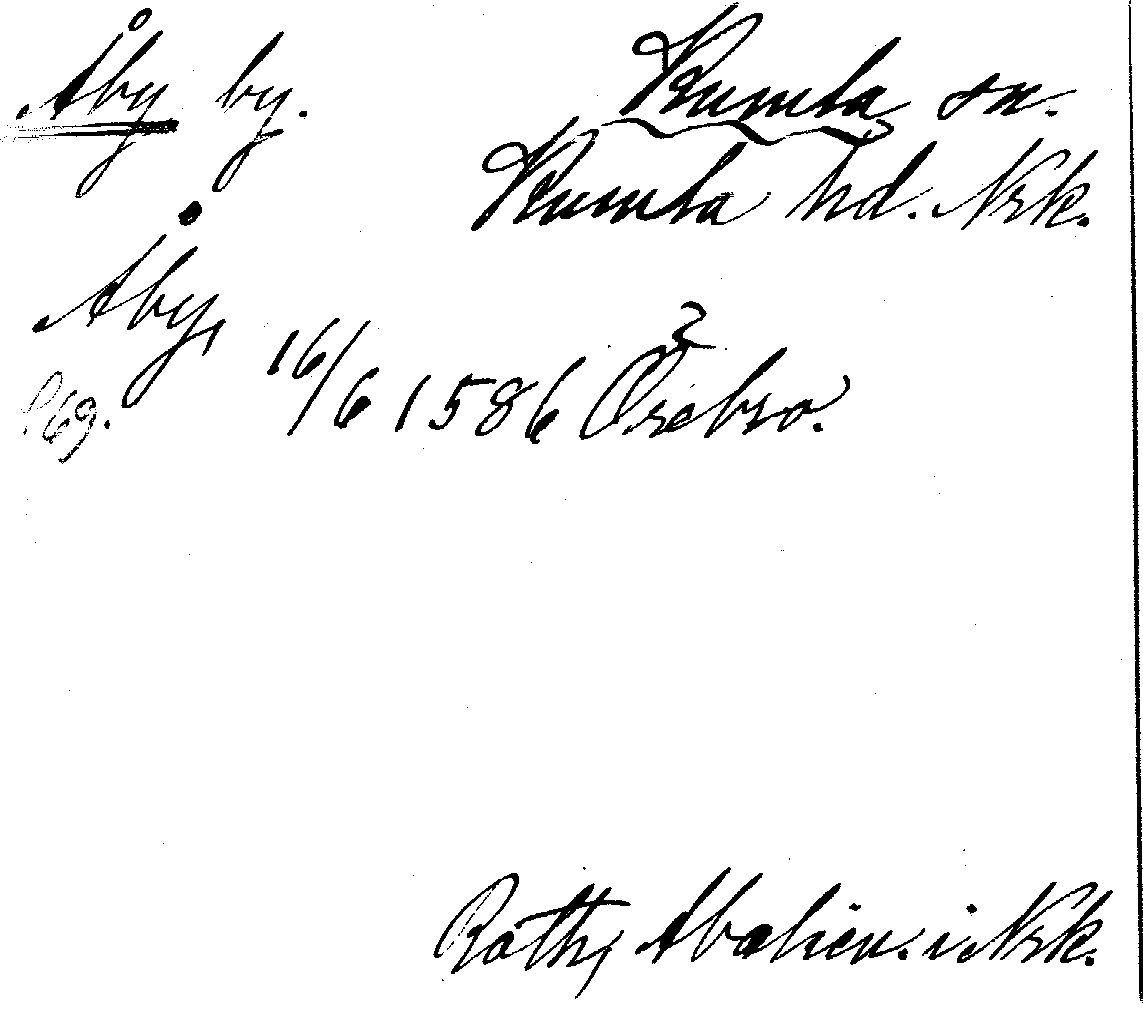 Åby by. Kumla sn.
Kumla hd. Nrk.
Åby, 16/6 1586 Örebro.
P69.
Roth, i Nrk.